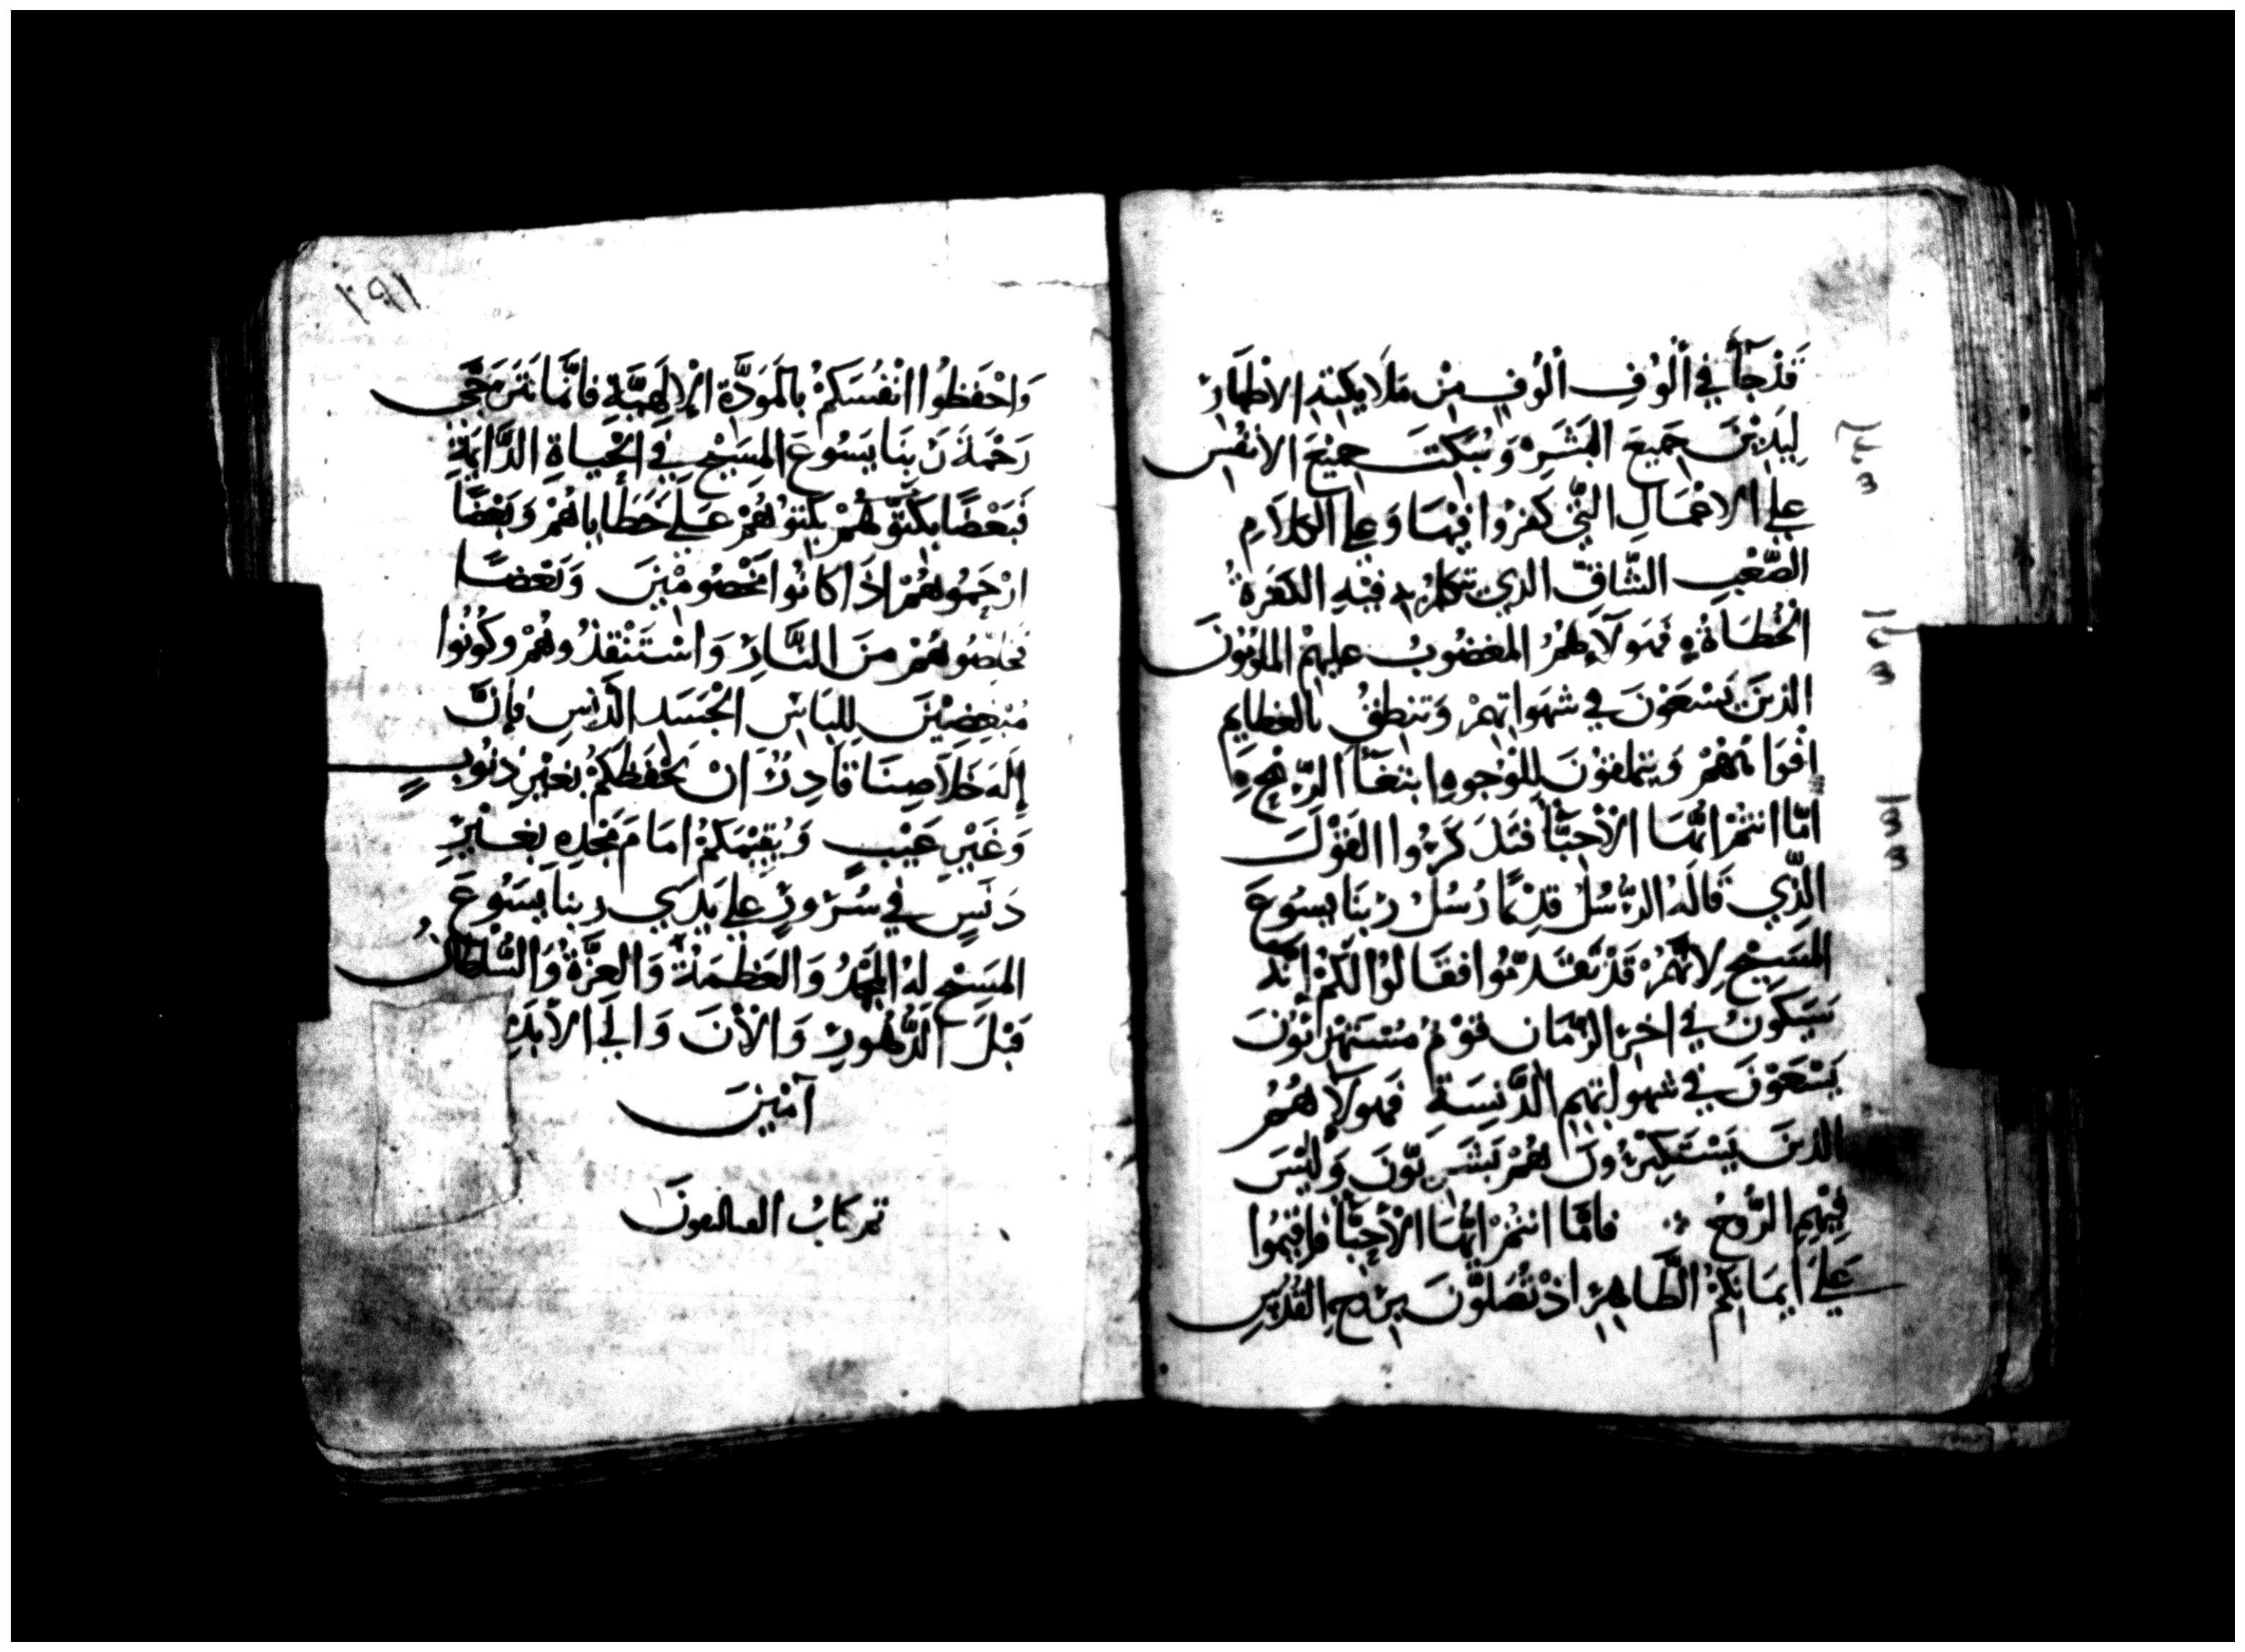 قَدْ جَآءَ في أُلُوفِ أُلُوفٍ مِنْ مَلَايِكَتِهِ الاطهَار
لِيَدِيْنَ جَمِيعَ البَشَرِ وَيُبَكِّتَ جَمِيْعَ الانفُس
علي الاعْمَالِ الَّتِي كَفَرُوا فِيْهَا وَعلي الكلَامِ
الصَّعْبِ الشَّاقِّ الذي تكلم به فِيْهِ الكفَرةُ
الخُطَاةُ فهَولَآءِ هُمُ المغضُوبُ عليهِمْ الملومُونَ
الذينَ يَسْعَوْنَ في شهَواتِهمْ وَتنطِقُ بالعظايمِ
افْوَاهُهُمْ وَيتملقوْنَ للوُجوهِ ابتغَآ الرِّبْحِ
امَّا انتُمْ ايُّهَا الأَحِبَّآءُ فتَذَكَّرُوا القَوْلَ
الَّذِي قَالَهُ الرُّسُلُ قدِيْمًا رُسُلُ رَبِّنَا يسُوعَ
المَسِيْحِ لِانَّهُمْ قَدْ تَقَدَّمُوا فقَالوُا لَكُمْ انَّه
سَيَكونُ في اخرِ الزَّمَانِ قوْمٌ مُسْتَهْزِئُونَ
يَسْعَوْنَ في شهواتِهِمِ الدَّنِسَةِ فهولآءِ هُمُ
الذينَ يَسْتَكبِرُونَ هُمْ بَشَرِيّوُنَ وَلَيْسَ
فِيْهِمِ الرُّوحُ فامَّا انتُمْ ايُّهَا الأَحِبَّآءُ فاقيْمُوا
عَلَي ايمَانِكُمْ الطَّاهِرِ اذ تُصَلُّوْنَ بِروحِ القُدُسِ
١٩١
وَاحْفَظُوا انْفُسَكُمْ بالمَوَدَّةِ الإِلَاهِيَّةِ فانَّمَا نَتَرَجَّى
رَحْمَةَ رَبِّنَا يَسُوعَ المَسِيْحِ في الحَيَاةِ الدَّايمَةِ
فَبَعْضًا بَكِّتُوهُمْ عَلَى خَطَايَاهُمْ وَبَعْضًا
ارْحَمُوهُمْ اذَا كَانُوا مَخْصُومِيْنَ وَبَعْضًا
خلِّصُوهُمْ مِنَ النَّارِ وَاسْتَنْقِذُوهُمْ وَكُونُوا
مُبْغِضِيْنَ لِلِبَاسِ الجَسَدِ الدَّنِسِ فَإِنَّ
إِلَهَ خَلَاصِنَا قَادِرٌ انْ يَحْفَظَكُمْ بِغَيْرِ ذنُوبٍ
وَغَيْرِ عَيْبٍ وَيُقِيْمَكُمْ امَامَ مَجْدِهِ بِغَيْرِ
دَنَسٍ في سُرُورٍ علي يَدَي رَبِّنَا يَسُوعَ
المَسِيْحِ لهُ المَجْدُ وَالعَظَمَةُ وَالعِزَّةُ وَالسُّلْطَانُ
قَبْلَ الدُّهُورِ وَالأَنَ وَالَي الأَبَدِ
آمِيْنَ
تم كتابُ القتاليقونَ